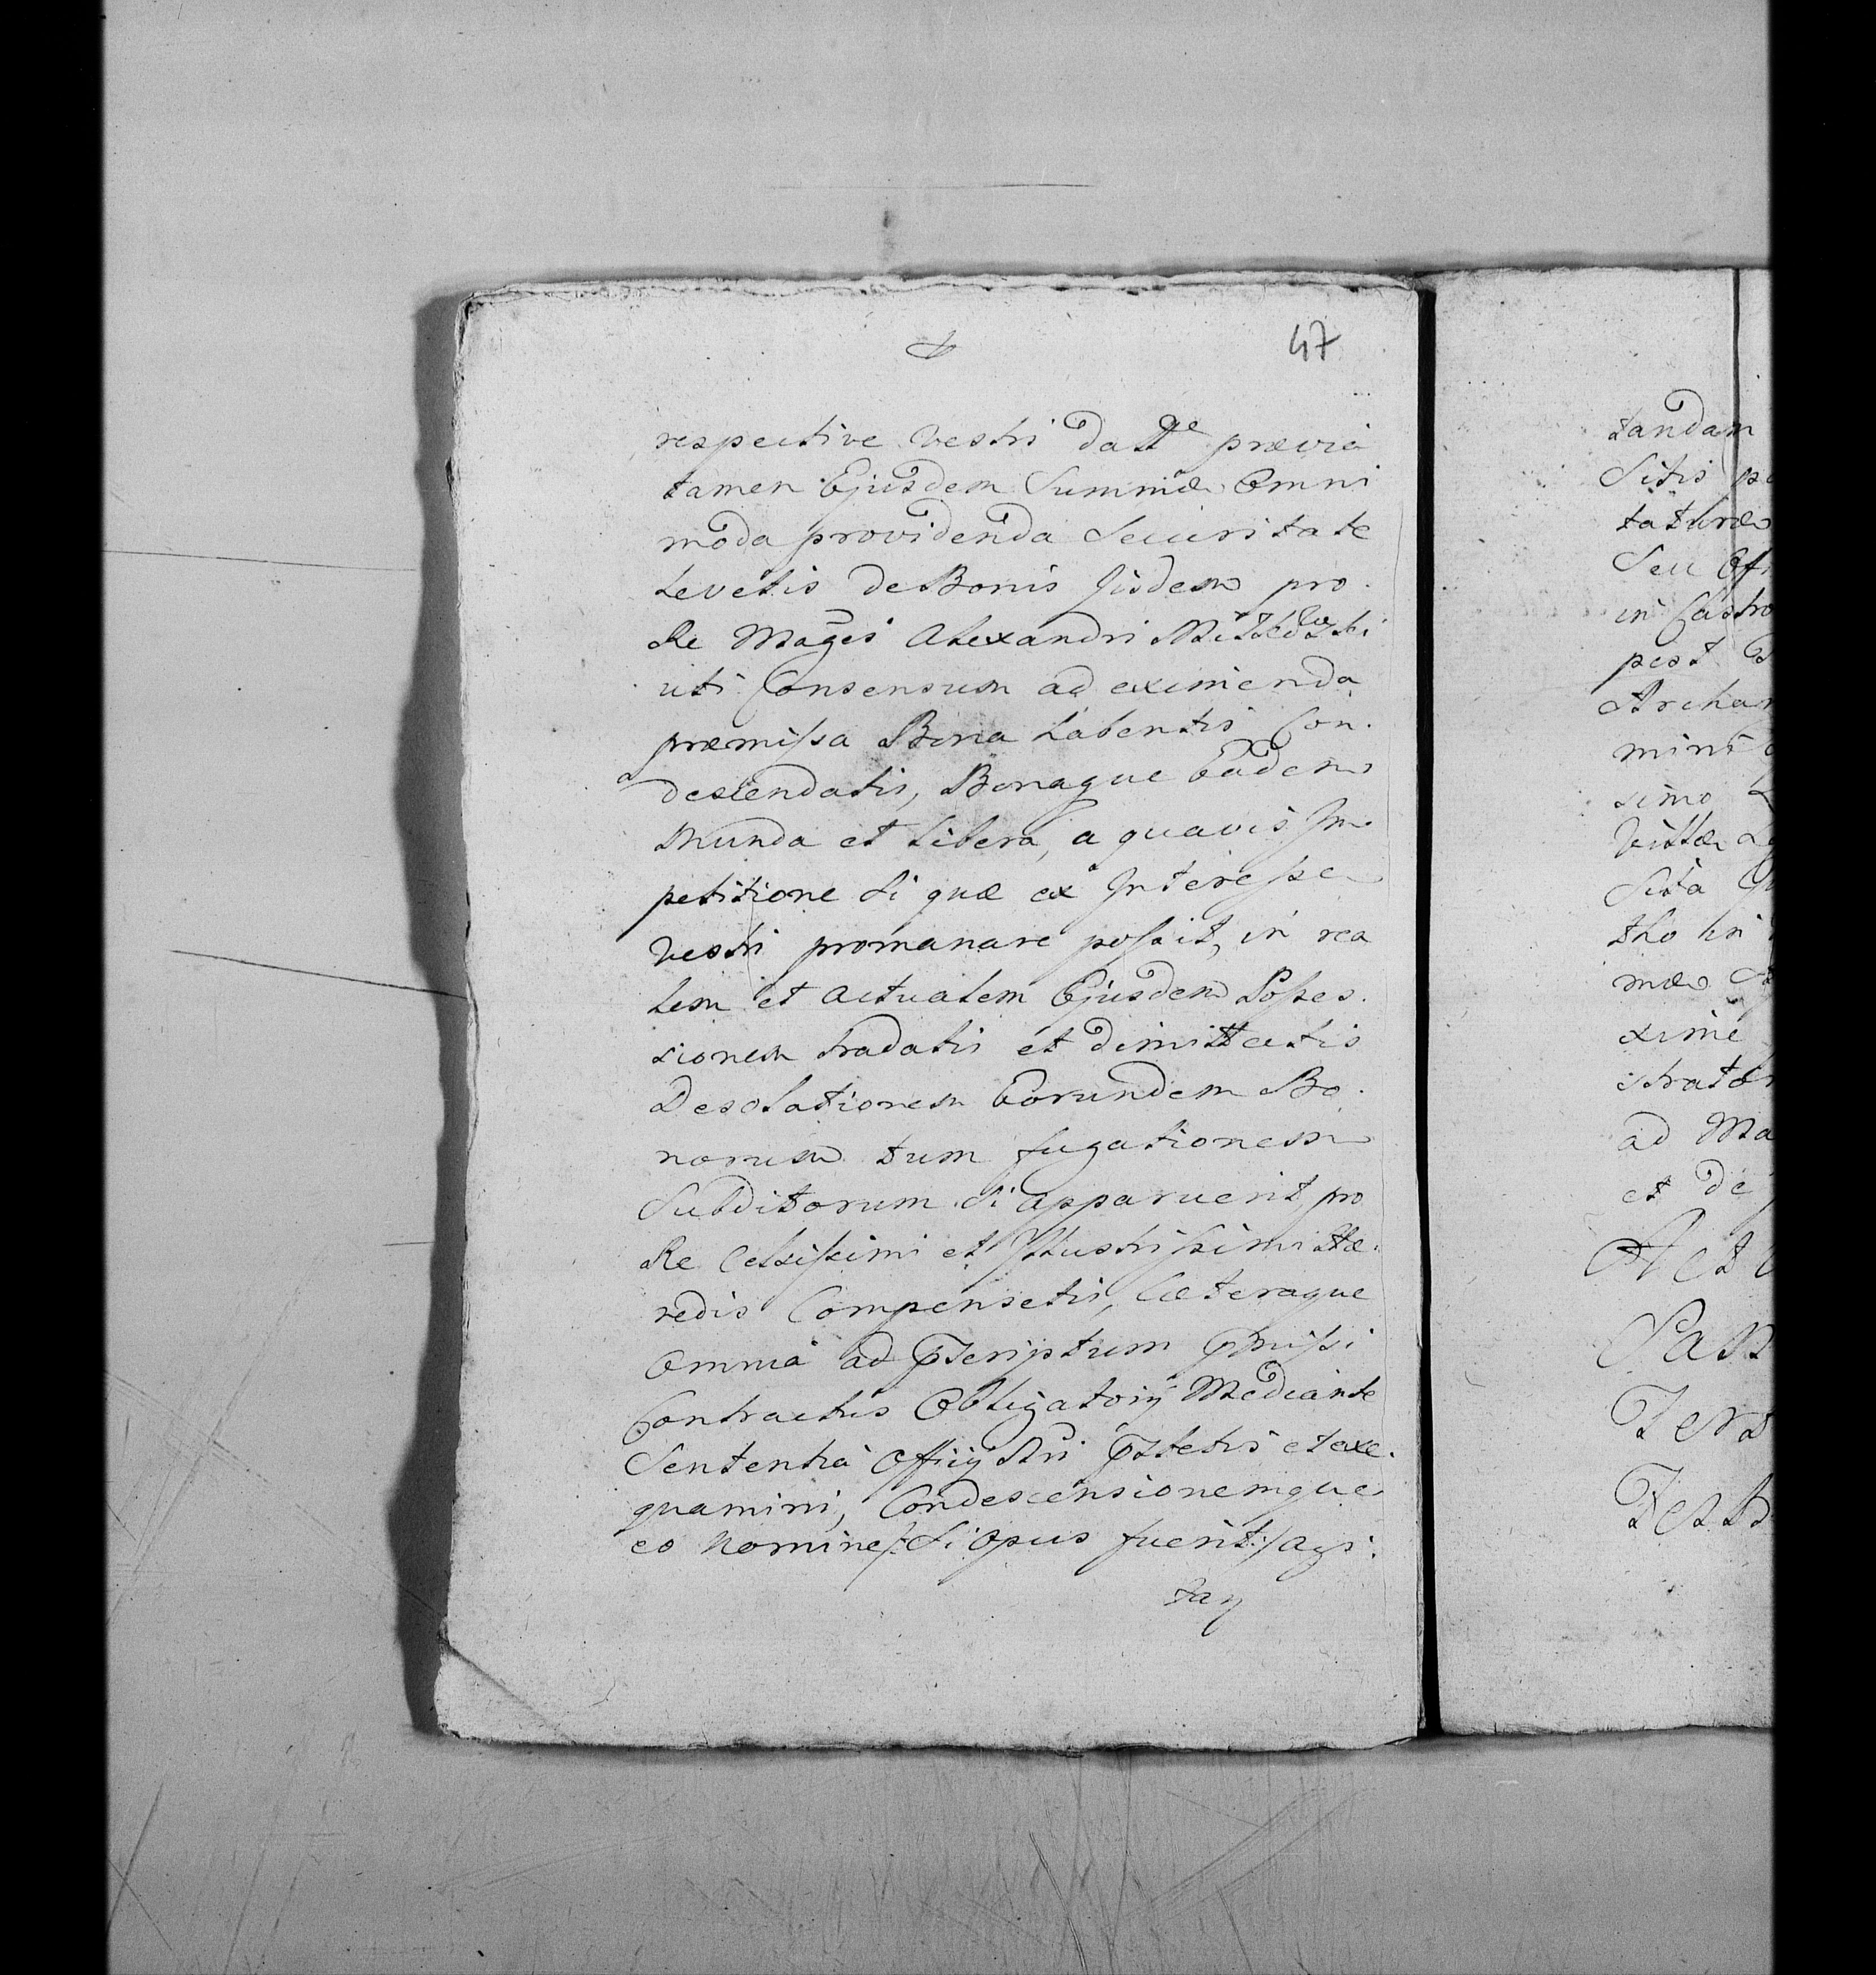 47
respective Vestri datt<sup>ae</sup> prævia
tamen Ejusdem Summæ Omni
moda providenda Securitate
Levetis de Bonis Jisdem pro
Re Magci Alexandri
uti Consensum ad eximenda
præmissa Bona habentis Con.
descendatis, Bonaque Eadem
Munda et libera, a quavis Im
petitione Si quæ ex Interesse
Vestri promanare possit, in rea
lem et actualem Ejusdem Posses.
sionem tradatis et dimittatis
Desolationem Eorundem Bo.
norum tum fugationem
Subditorum Si apparuerit, pro
Re Celsissimi et Illustrissimi Hæ.
redis Compensetis, Cæteraque
Omnia ad pscriptum pmissi
Contractus Obligatorij Mediante
Sententia Officij Nri pstetis et exe.
quamini, Condescensionemque
eo Nomine /: Si opus fuerit :/ agi.
tan
tandam
Sitis
taturæ
Seu
in Castro
post
Archan
mini
simo
Villæ
Sita
tho in
mæ
xime
strator
ad Ma
et de